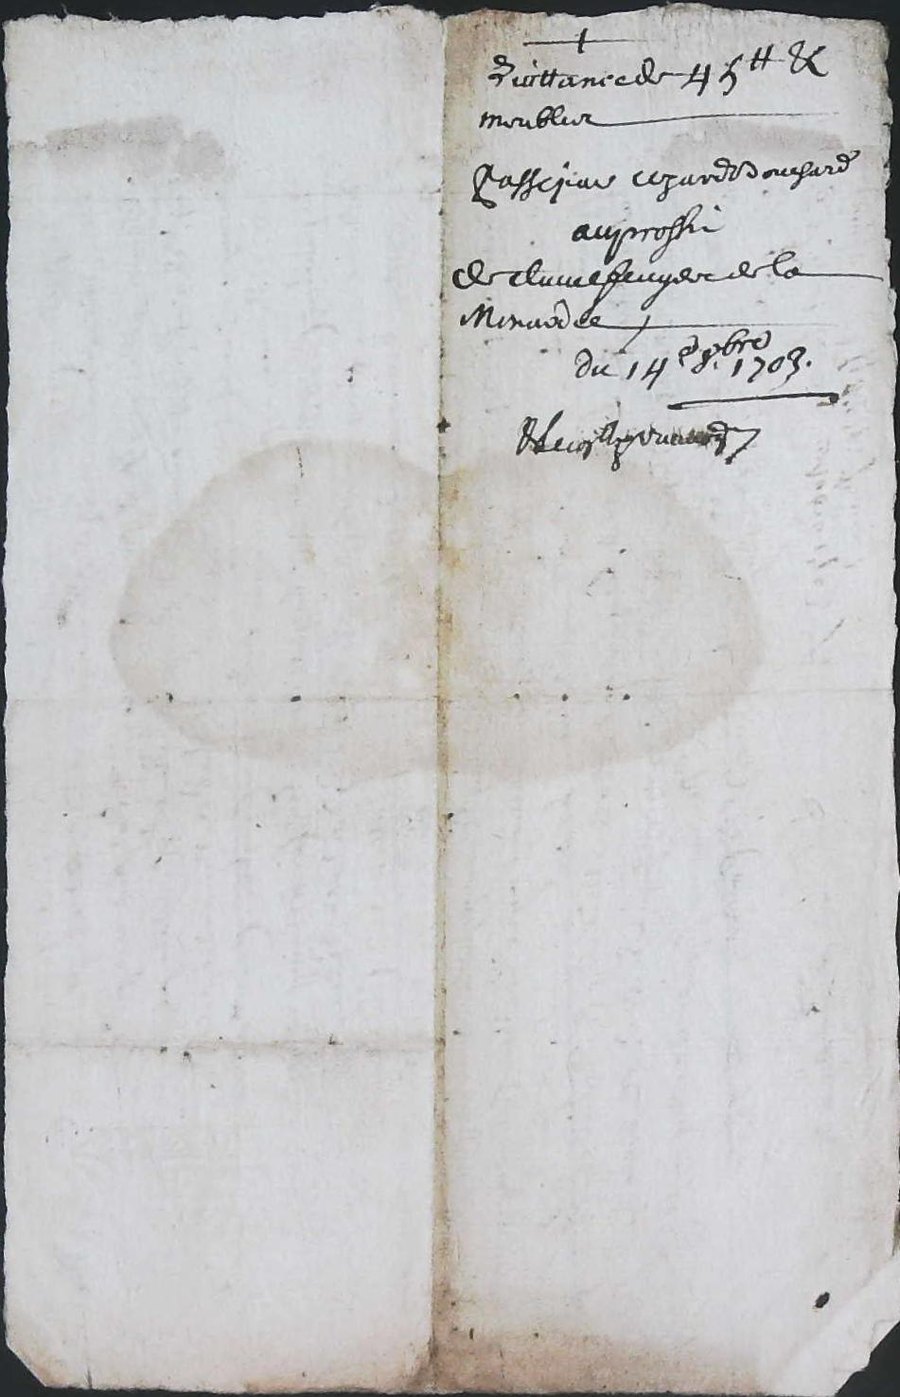 Quittance de 45 ₶ &
meubles
Passé par cezard Bouchard
au proffit
de claude de la
Minardee
du 14e 8bre 1703.